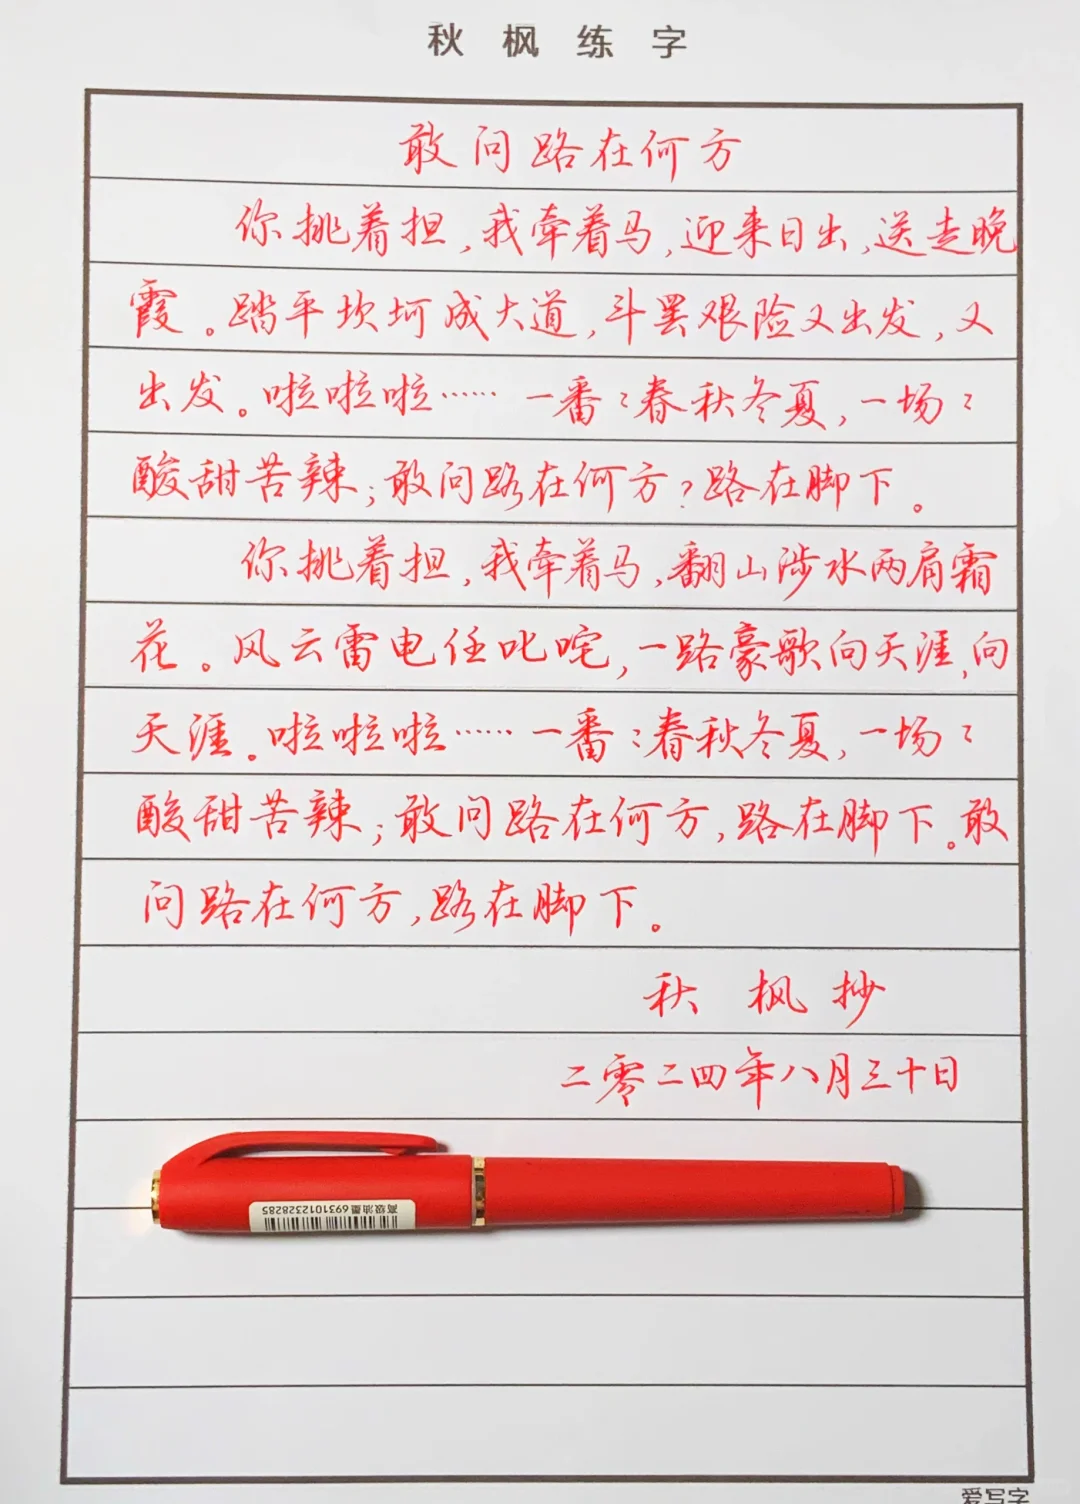 秋枫练字
敢问路在何方
你挑着担,我牵着马,迎来日出,送走晚
霞。踏平坎坷成大道,斗罢艰险又出发,又
出发。啦啦啦…… 一番番春秋冬夏,一场场
酸甜苦辣;敢问路在何方?路在脚下。
你挑着担,我牵着马,翻山涉水两肩霜
花。风云雷电任叱咤,一路豪歌向天涯,向
天涯。啦啦啦…… 一番番春秋冬夏,一场场
酸甜苦辣;敢问路在何方,路在脚下。敢
问路在何方,路在脚下。
秋枫抄
二零二四年八月三十日
高级油墨 6931012328285
爱写字